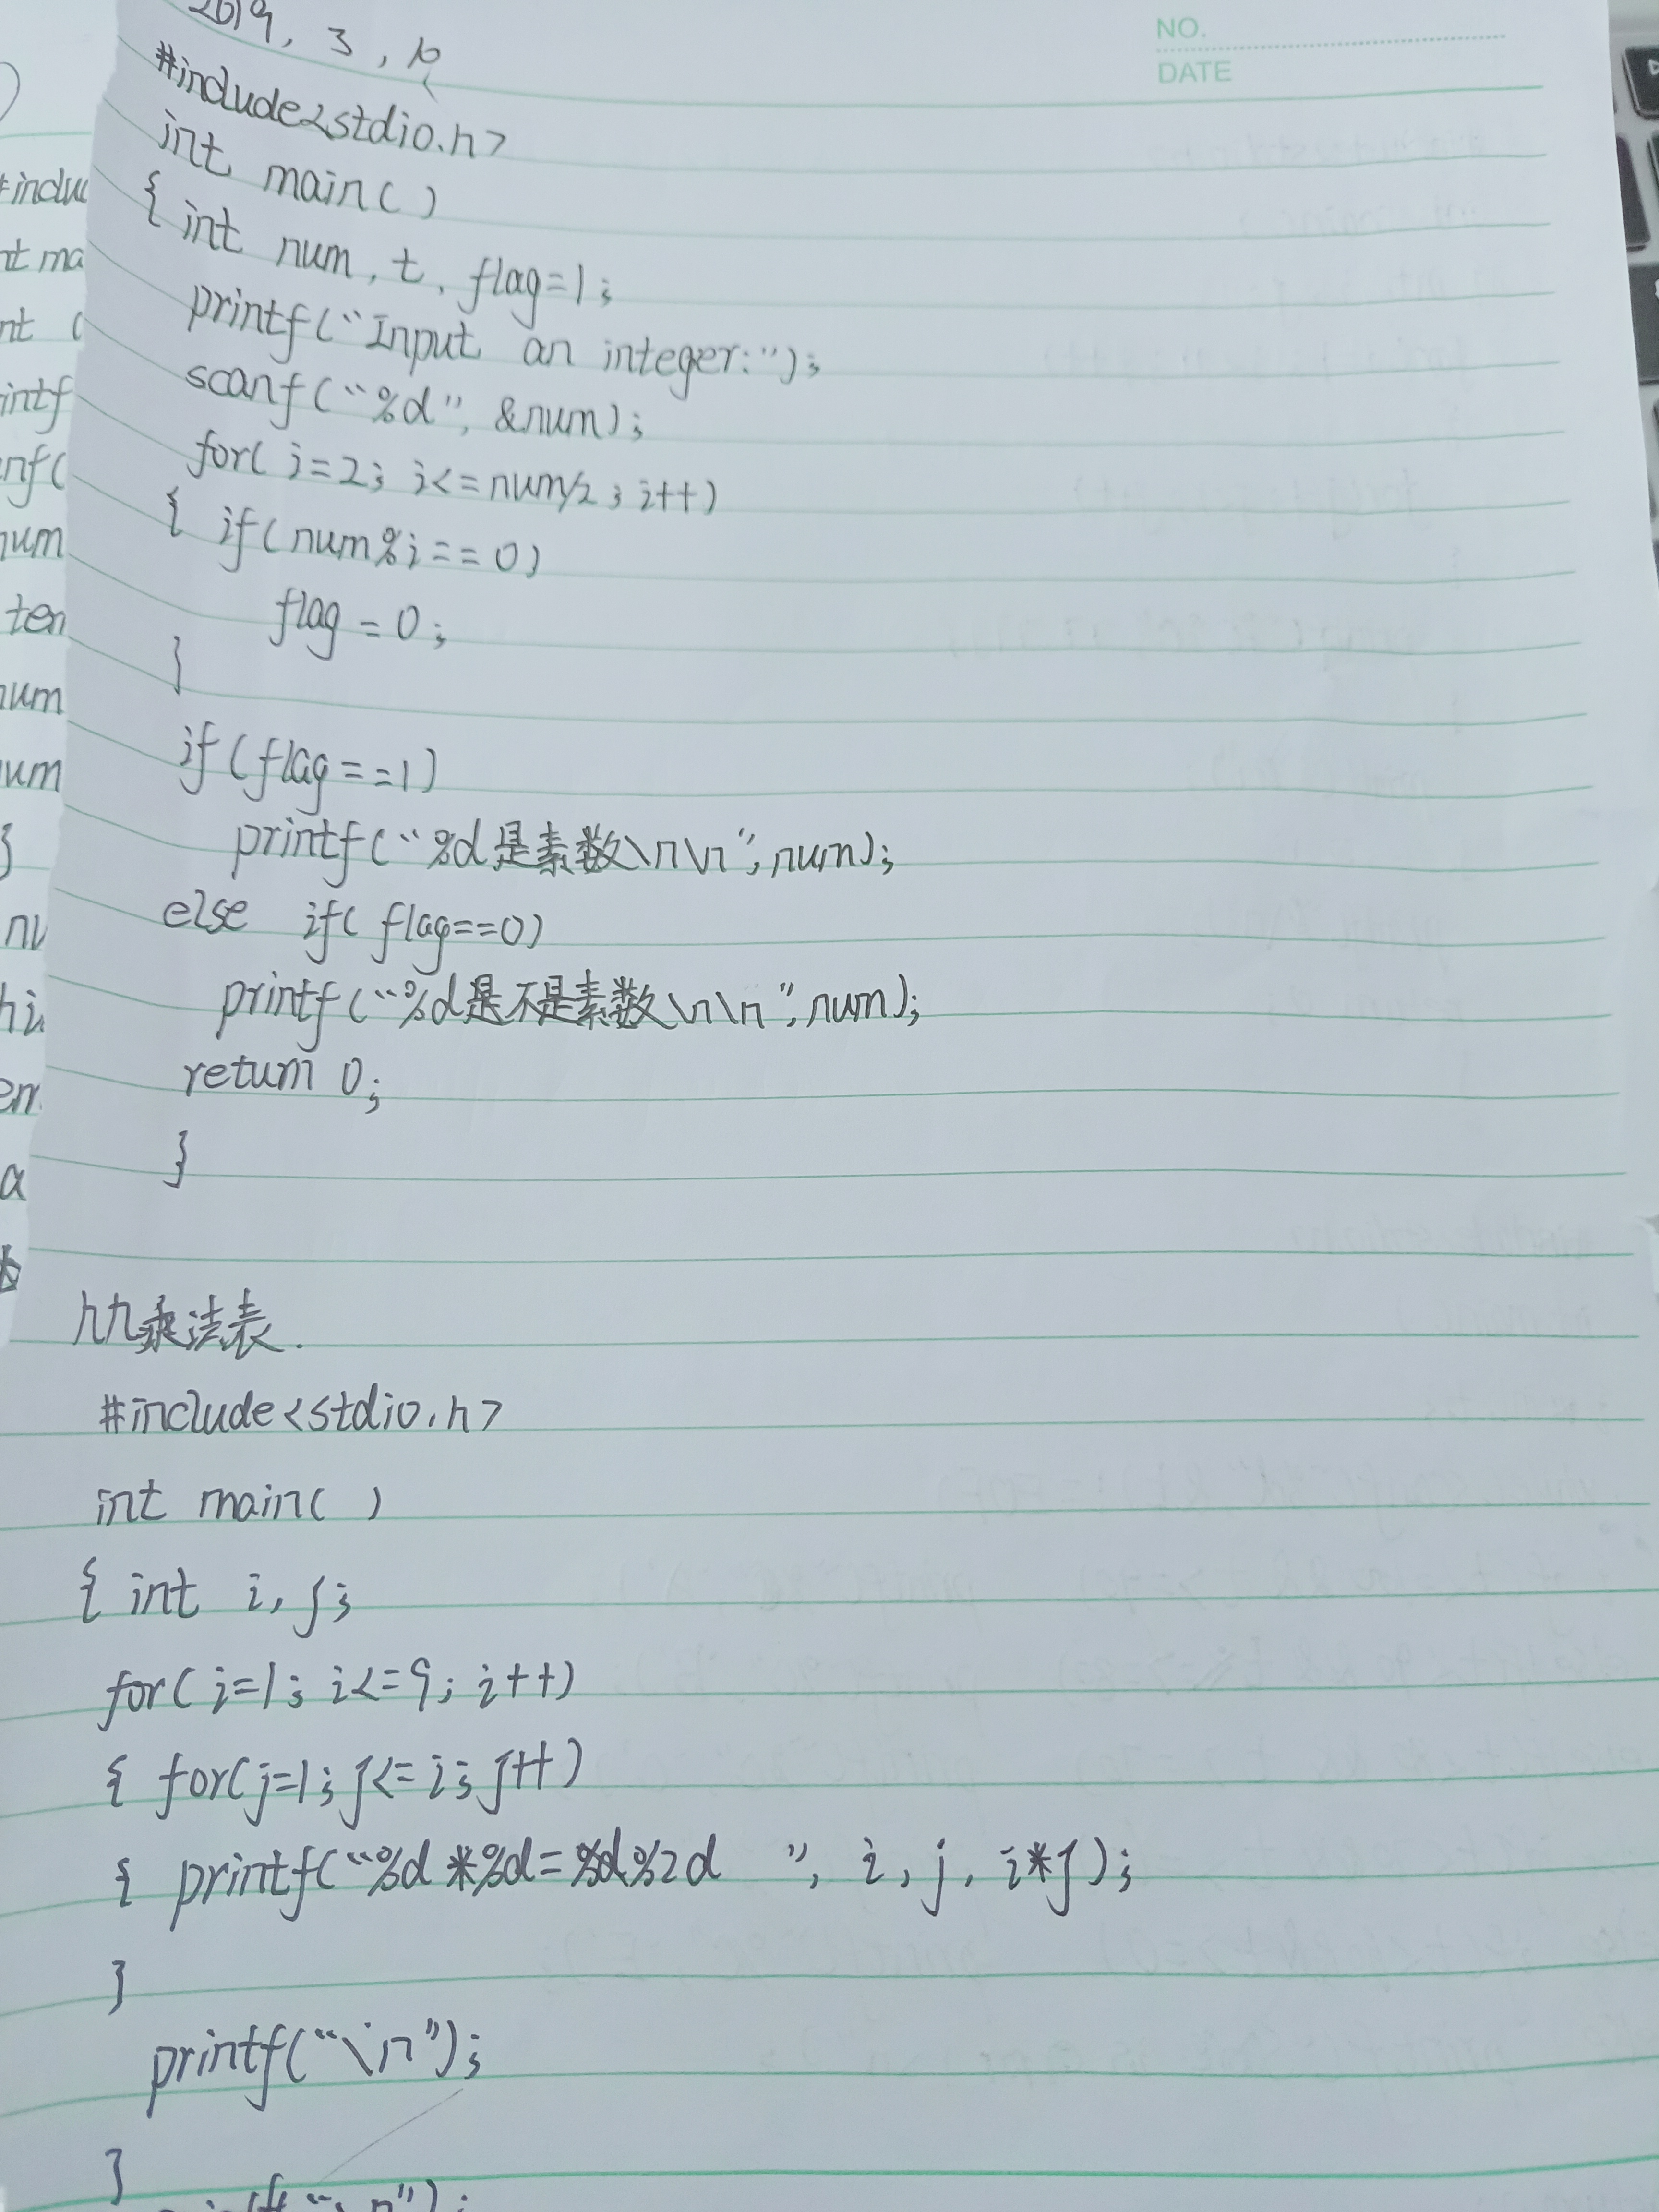 2019, 3, 10
NO.
DATE
#include<stdio.h>
int main( )
{ int num, t, flag=1;
printf("Input an integer:");
scanf("%d", &num);
for( i=2; i<=num/2; i++)
{ if(num%i==0)
flag=0;
}
if(flag==1)
printf("%d是素数\n\n",num);
else if( flag==0)
printf("%d是不是素数\n\n",num);
return 0;
}
九九乘法表.
#include<stdio.h>
int main( )
{ int i, j;
for( i=1; i<=9; i++)
{ for(j=1; j<=i; j++)
{ printf("%d*%d=%d%2d ", i, j, i*j);
}
printf("\n");
}
#inclu
nt ma
nt
intf
nf(
num
ten
num
um
}
nu
hi
en
a